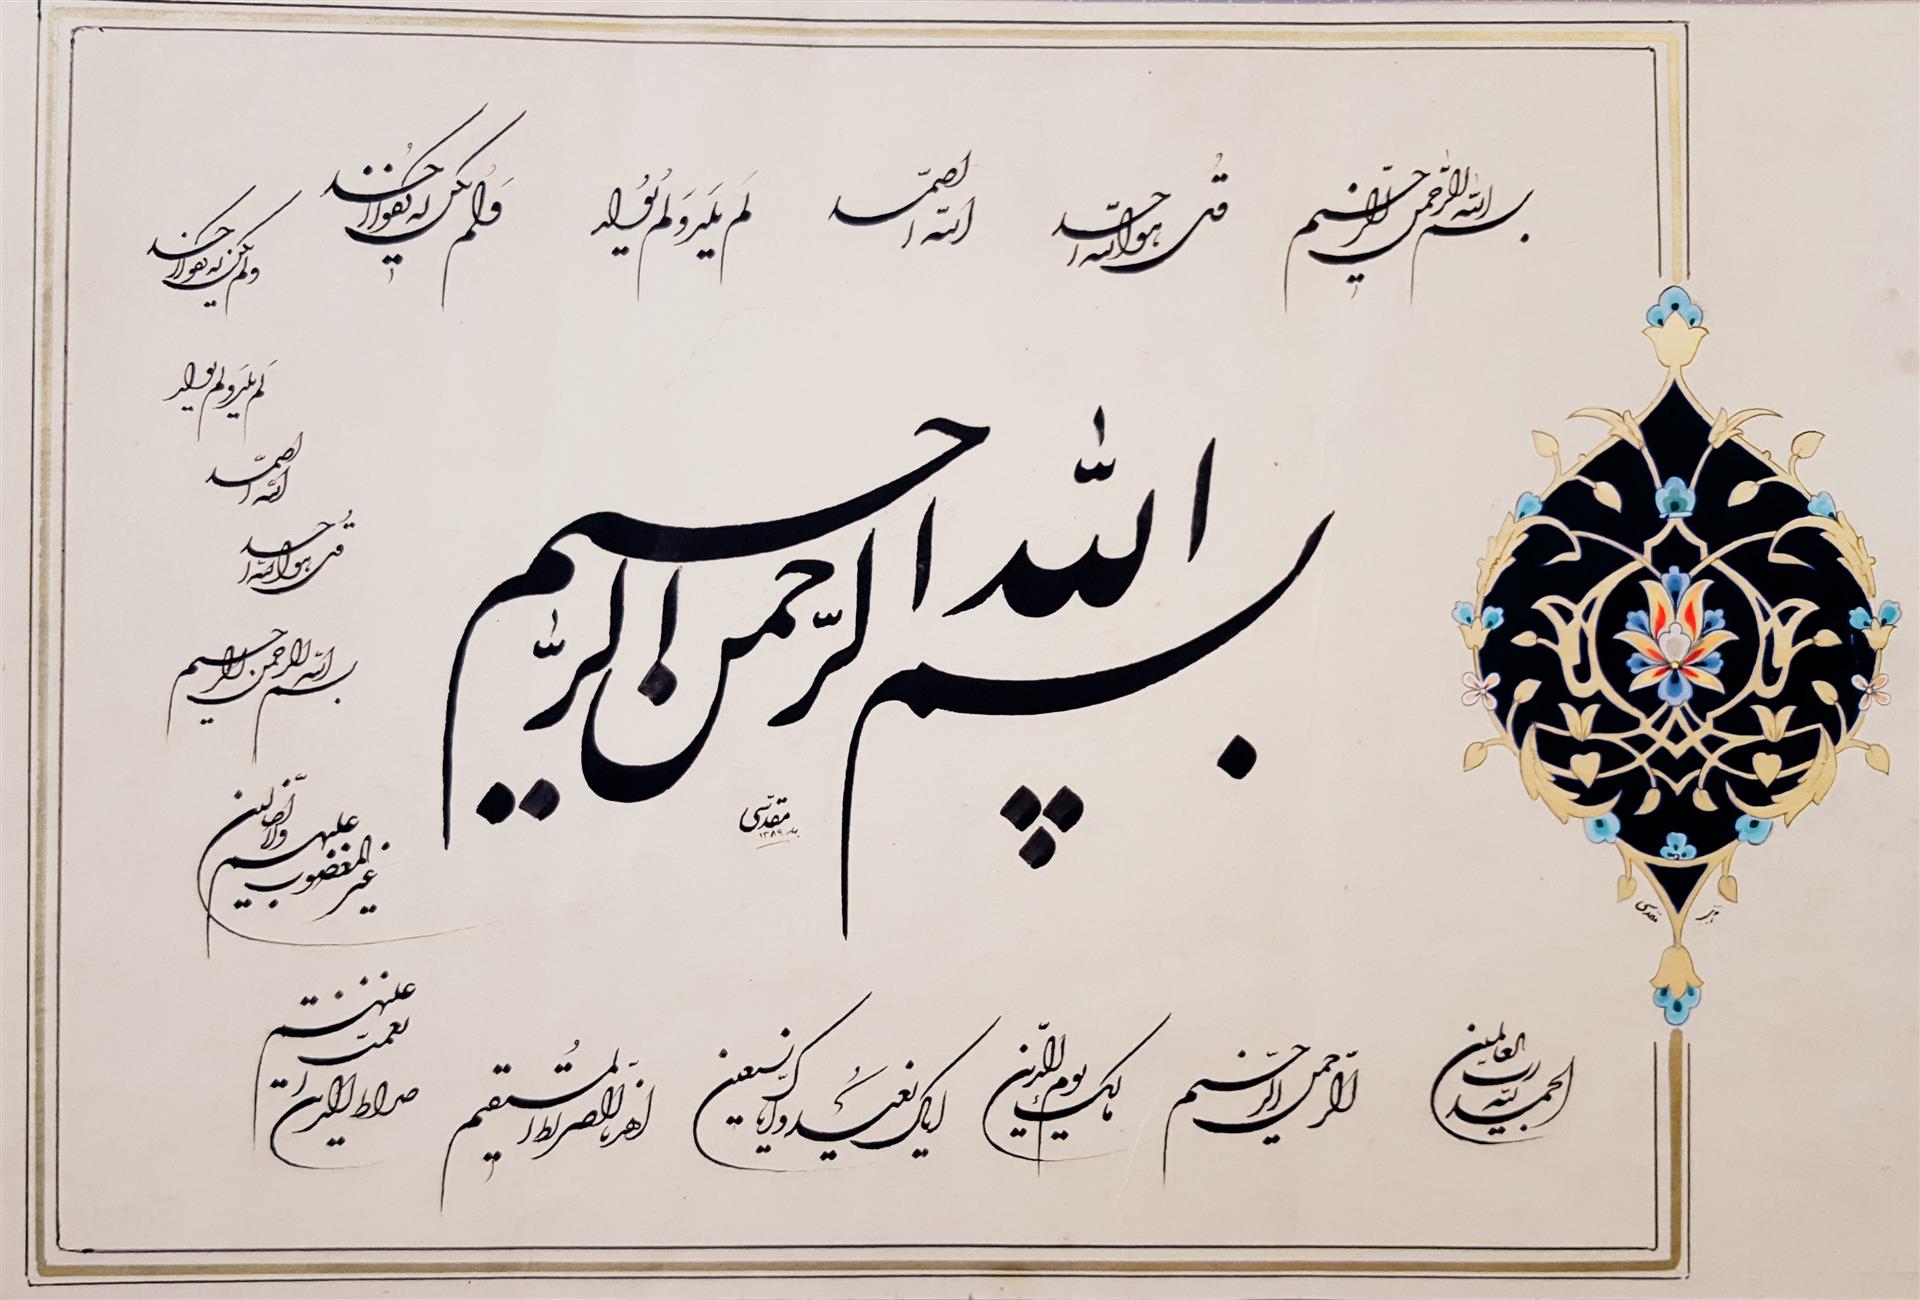 بسم الله الرحمن الرحیم
قل هو الله احد
الله الصمد
لم یلد ولم یولد
ولم یکن له کفوا احد
ولم یکن له کفوا احد
لم یلد ولم یولد
الله الصمد
قل هو الله احد
بسم الله الرحمن الرحیم
بسم الله الرحمن الرحیم
مقدسی
۱۳۸۹
الحمد لله رب العالمین
الرحمن الرحیم
مالک یوم الدین
ایاک نعبد وایاک نستعین
اهدنا الصراط المستقیم
صراط الذین انعمت علیهم
غیر المغضوب علیهم ولا الضالین
مقدسی